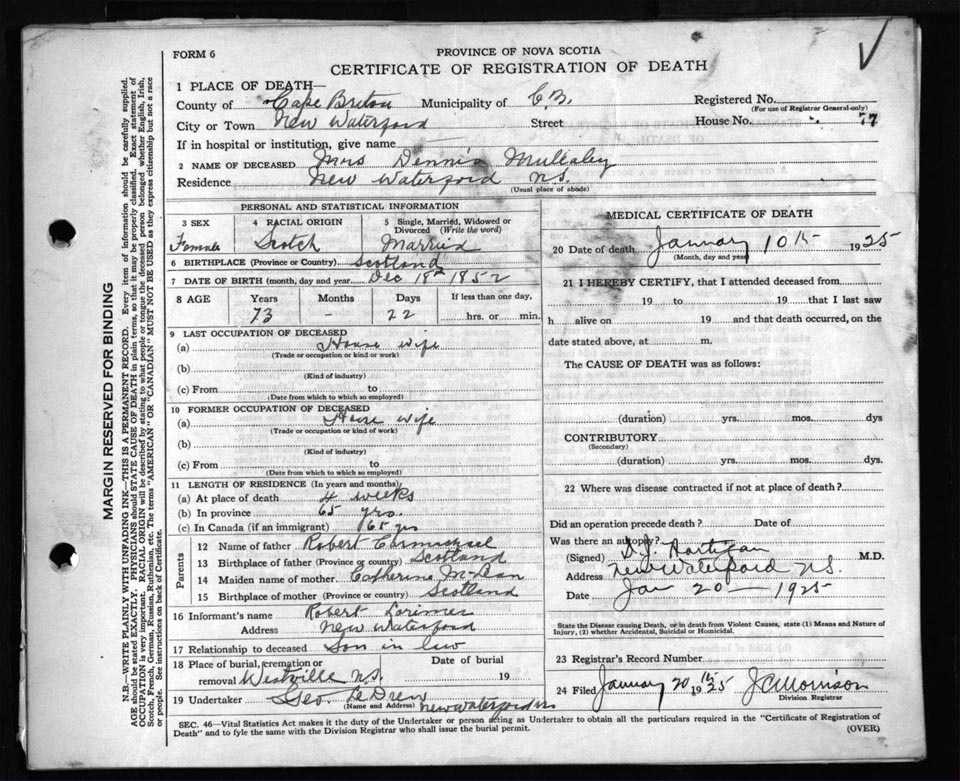 FORM 6
PROVINCE OF NOVA SCOTIA
CERTIFICATE OF REGISTRATION OF DEATH
1 PLACE OF DEATH—
County of Cape Breton Municipality of C.B. Registered No.
(For use of Registrar General-only)
City or Town New Waterford Street House No. 77
If in hospital or institution, give name
2 NAME OF DECEASED Mrs Dennis Mullaley
Residence New Waterford NS.
(Usual place of abode)
PERSONAL AND STATISTICAL INFORMATION
3 SEX 4 RACIAL ORIGIN 5 Single, Married, Widowed or Divorced (Write the word)
Female Scotch Married
6 BIRTHPLACE (Province or Country) Scotland
7 DATE OF BIRTH (month, day and year) Dec 18th 1852
8 AGE Years Months Days If less than one day,
73 - 22 hrs. or min.
9 LAST OCCUPATION OF DECEASED
(a) House wife
(Trade or occupation or kind or work)
(b)
(Kind of industry)
(c) From to
(Date from which to which so employed)
10 FORMER OCCUPATION OF DECEASED
(a) House wife
(Trade or occupation or kind of work)
(b)
(Kind of industry)
(c) From to
(Date from which to which so employed)
11 LENGTH OF RESIDENCE (In years and months)
(a) At place of death 4 weeks
(b) In province 65 yrs.
(c) In Canada (if an immigrant) 65 yrs
Parents
12 Name of father Robert Carmichael
13 Birthplace of father (Province or country) Scotland
14 Maiden name of mother Catherine McBan
15 Birthplace of mother (Province or country) Scotland
16 Informant's name Robert Lorimer
Address New Waterford
17 Relationship to deceased Son in law
18 Place of burial, cremation or removal Westville N.S. Date of burial 19
19 Undertaker Geo. LeDrew New Waterford NS
(Name and Address)
MEDICAL CERTIFICATE OF DEATH
20 Date of death January 10th 1925
(Month, day and year)
21 I HEREBY CERTIFY, that I attended deceased from
19 to 19 that I last saw
h alive on 19 and that death occurred, on the
date stated above, at m.
The CAUSE OF DEATH was as follows:
(duration) yrs. mos. dys
CONTRIBUTORY
(Secondary)
(duration) yrs. mos. dys.
22 Where was disease contracted if not at place of death?
Did an operation precede death? Date of
Was there an autopsy?
(Signed) D.J. Hartigan M.D.
Address New Waterford NS.
Date Jan 20 — 1925
State the Disease causing Death, or in death from Violent Causes, state (1) Means and Nature of
Injury, (2) whether Accidental, Suicidal or Homicidal.
23 Registrar's Record Number
24 Filed January 20th 1925 J C Morrison
Division Registrar
SEC. 46—Vital Statistics Act makes it the duty of the Undertaker or person acting as Undertaker to obtain all the particulars required in the "Certificate of Registration of
Death" and to fyle the same with the Division Registrar who shall issue the burial permit.
(OVER)
MARGIN RESERVED FOR BINDING
N.B.—WRITE PLAINLY WITH UNFADING INK—THIS IS A PERMANENT RECORD. Every item of information should be carefully supplied.
AGE should be stated EXACTLY. PHYSICIANS should STATE CAUSE OF DEATH in plain terms, so that it may be properly classified. Exact statement of
OCCUPATION is very important. RACIAL ORIGIN will be described by stating to what people or tongue the deceased person belonged whether English, Irish,
Scotch, French, German, Russian, Ruthenian, etc. The terms "AMERICAN" OR "CANADIAN" MUST NOT BE USED as they express citizenship but not a race
or people. See instructions on back of Certificate.